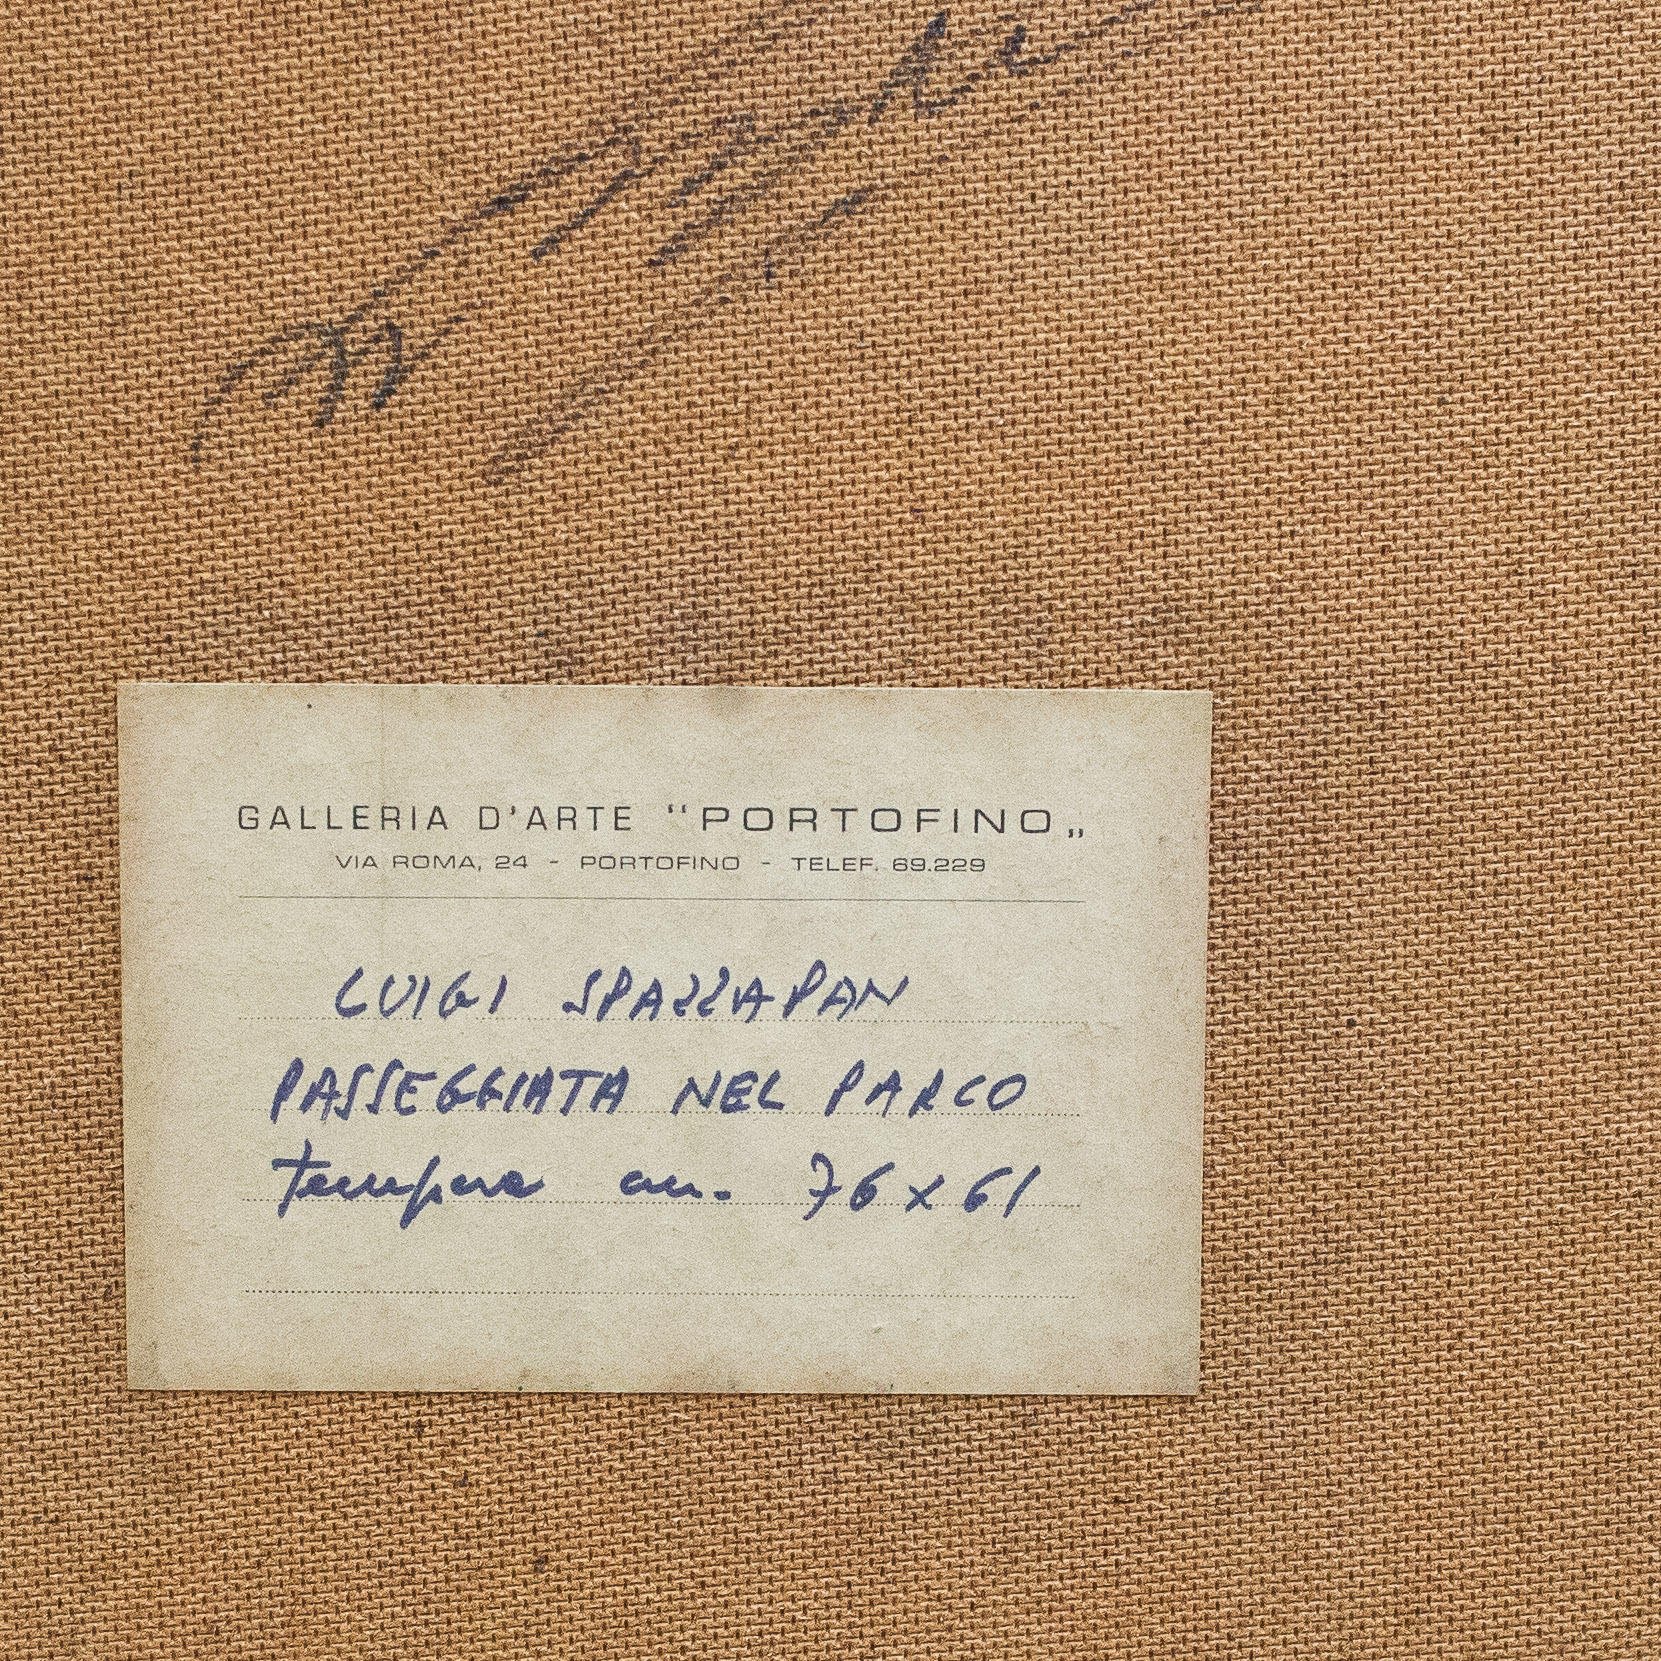 GALLERIA D'ARTE “PORTOFINO„
VIA ROMA, 24 - PORTOFINO - TELEF. 69.229
LUIGI SPAZZAPAN
PASSEGGIATA NEL PARCO
tempera cm. 76x61